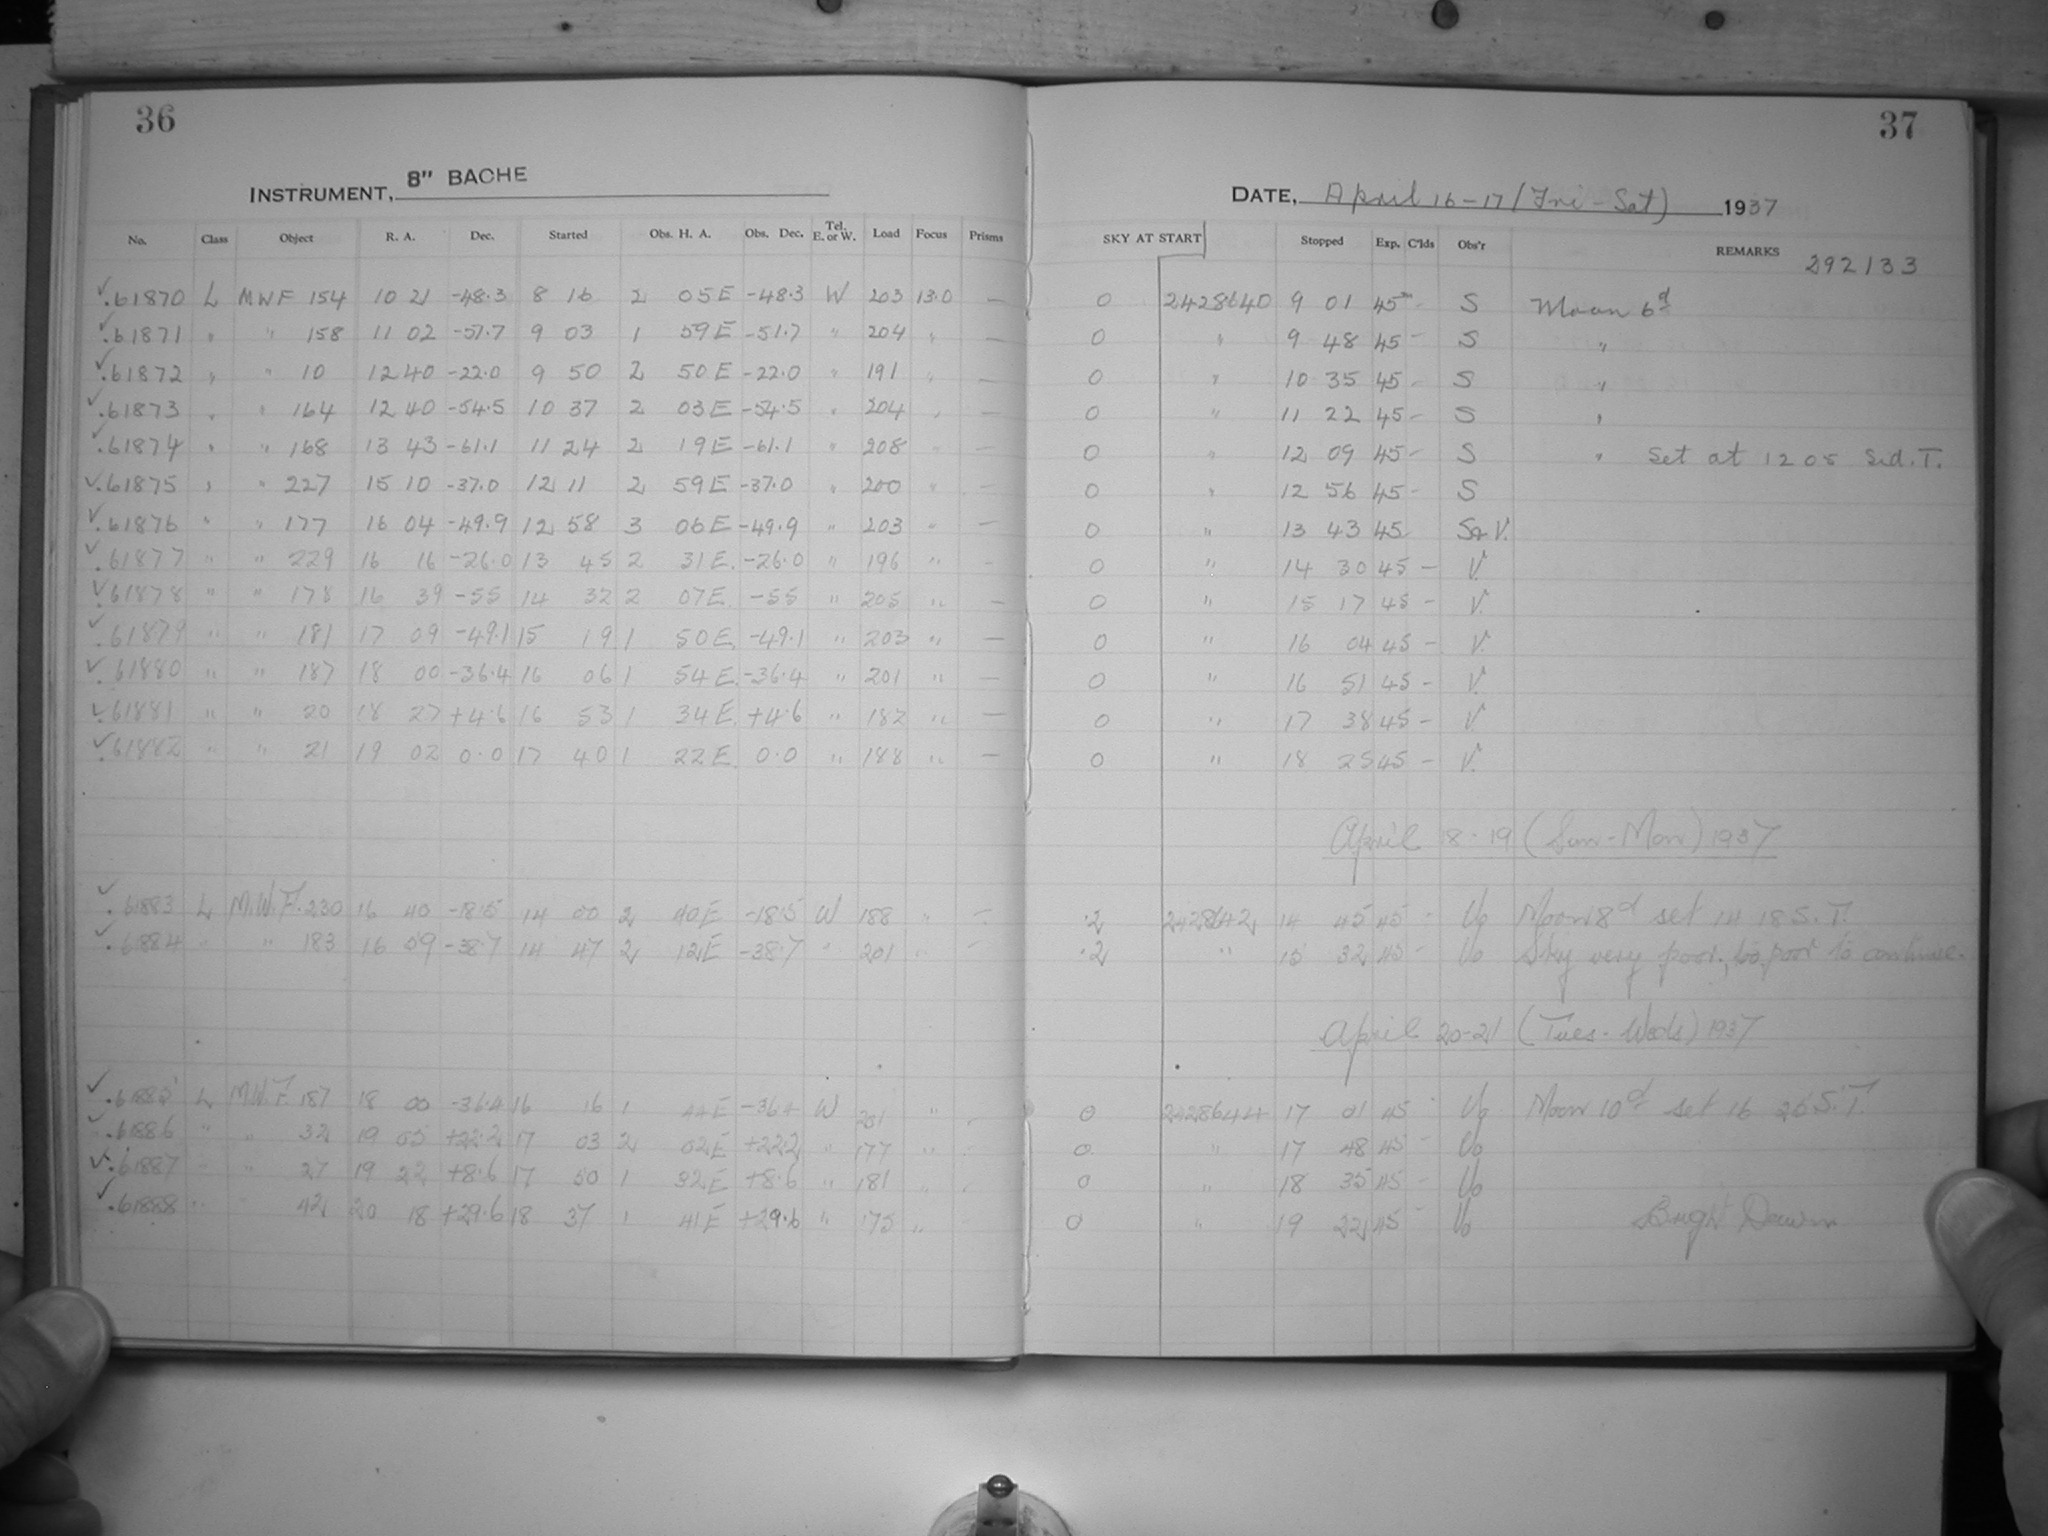 36
37
INSTRUMENT, 8" BACHE
DATE, April 16-17 (Fri-Sat) 1937
No. Class Object R. A. Dec. Started Obs. H. A. Obs. Dec. Tel. E. or W. Load Focus Prisms SKY AT START Stopped Exp. C'lds Obs'r REMARKS
292133
✓.61870 L MWF 154 10 21 -48.3 8 16 2 05E -48.3 W 203 13.0 — 0 2428640 9 01 45m - S Moon 6d
✓.61871 " " 158 11 02 -51.7 9 03 1 59E -51.7 " 204 " — 0 " 9 48 45 - S "
✓.61872 " " 10 12 40 -22.0 9 50 2 50E -22.0 " 191 " — 0 " 10 35 45 - S "
✓.61873 " " 164 12 40 -54.5 10 37 2 03E -54.5 " 204 " — 0 " 11 22 45 - S "
✓.61874 " " 168 13 43 -61.1 11 24 2 19E -61.1 " 208 " — 0 " 12 09 45 - S " Set at 12 05 Sid. T.
✓.61875 " " 227 15 10 -37.0 12 11 2 59E -37.0 " 200 " — 0 " 12 56 45 - S
✓.61876 " " 177 16 04 -49.9 12 58 3 06E -49.9 " 203 " — 0 " 13 43 45 S&V.
✓.61877 " " 229 16 16 -26.0 13 45 2 31E. -26.0 " 196 " - 0 " 14 30 45 - V.
✓.61878 " " 178 16 39 -55 14 32 2 07E. -55 " 205 " — 0 " 15 17 45 - V.
✓.61879 " " 181 17 09 -49.1 15 19 1 50E. -49.1 " 203 " — 0 " 16 04 45 - V.
✓.61880 " " 187 18 00 -36.4 16 06 1 54E. -36.4 " 201 " — 0 " 16 51 45 - V.
✓.61881 " " 20 18 27 +4.6 16 53 1 34E. +4.6 " 182 " — 0 " 17 38 45 - V.
✓.61882 " " 21 19 02 0.0 17 40 1 22E. 0.0 " 188 " — 0 " 18 25 45 - V.
April 18-19 (Sun-Mon) 1937
✓.61883 L M.W.F. 230 16 40 -18.5 14 00 2 40E -18.5 W 188 " - .2 2428642 14 45 45 - Vo Moon 8d set 14 18 S.T.
✓.61884 " " 183 16 59 -38.7 14 47 2 12E -38.7 " 201 " - .2 " 15 32 45 - Vo Sky very poor, too poor to continue.
April 20-21 (Tues-Weds) 1937
✓.61885 L M.W.F. 187 18 00 -36.4 16 16 1 44E -36.4 W 201 " - 0 2428644 17 01 45 - Vo Moon 10d set 16 25 S.T
✓.61886 " " 32 19 05 +22.2 17 03 2 02E +22.2 " 177 " - 0 " 17 48 45 - Vo
✓.61887 " " 27 19 22 +8.6 17 50 1 32E +8.6 " 181 " - 0 " 18 35 45 - Vo
✓.61888 " " 42 20 18 +29.6 18 37 1 41E +29.6 " 175 " 0 " 19 22 45 - Vo Bright Dawn